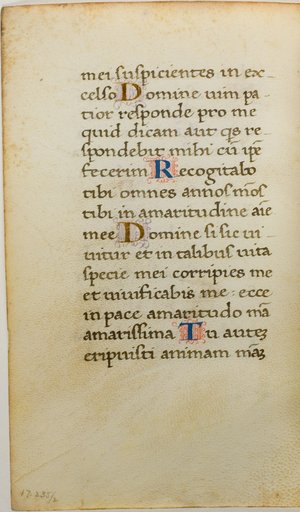 mei suspicientes in ex-
celso Domine uim pa-
tior responde pro me
quid dicam aut qs re-
spondebit mihi cũ ip̃e
fecerim Recogitabo
tibi omnes annos mõs
tibi in amaritudine aĩe
mee Domine si sic ui-
uitur et in talibus uita
specie mei corripies me
et uiuificabis me · ecce
in pace amaritudo mã
amarissima Tu autez
eripuisti animam mãz
17.235/2